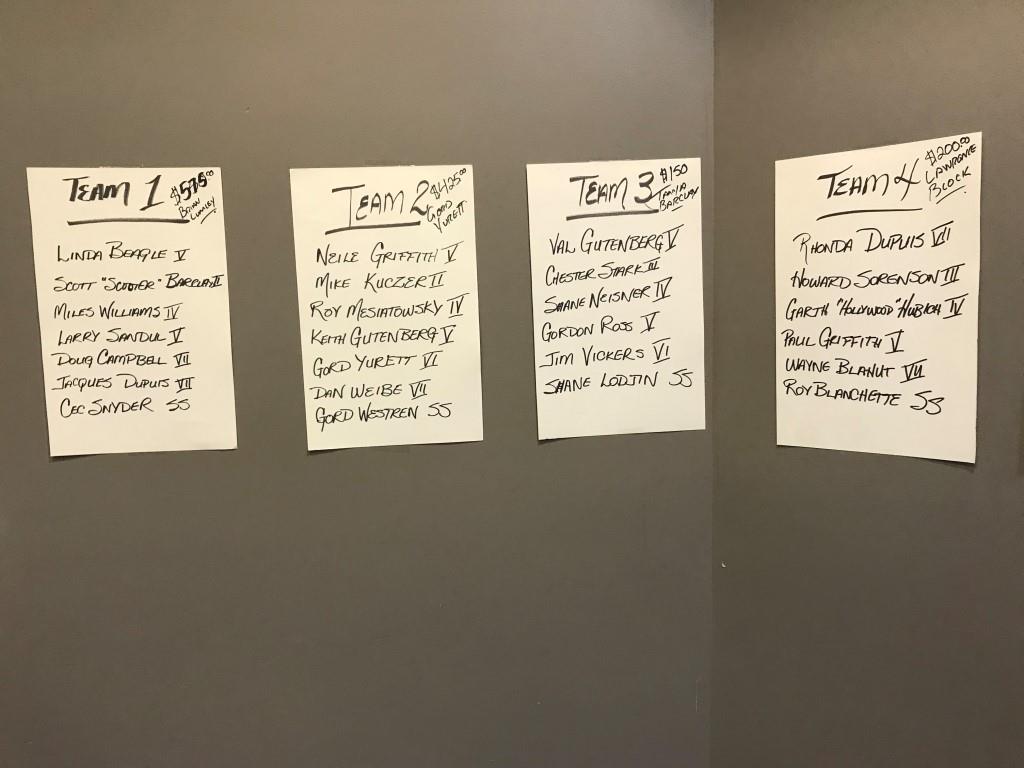 TEAM 1
$575.00
BRIAN
LINDA BEAGLE V
SCOTT "SCOOTER" BARCLAY II
MILES WILLIAMS IV
LARRY SANDUL V
DOUG CAMPBELL VII
JACQUES DUPUIS VII
CEC SNYDER SS
TEAM 2
$425.00
GORD
YURETT
NEILE GRIFFITH V
MIKE KUCZER II
ROY MESIATOWSKY IV
KEITH GUTENBERG V
GORD YURETT VI
DAN WEIBE VII
GORD WESTREN SS
TEAM 3
$150
TANJA
BARCLAY
VAL GUTENBERG V
CHESTER STARK III
SHANE NEISNER IV
GORDON ROSS V
JIM VICKERS VI
SHANE LODJIN SS
TEAM 4
$200.00
LAWRENCE
BLOCK
RHONDA DUPUIS VII
HOWARD SORENSON III
GARTH "HOLYWOOD" HUBICH IV
PAUL GRIFFITH V
WAYNE BLANUT VII
ROY BLANCHETTE SS